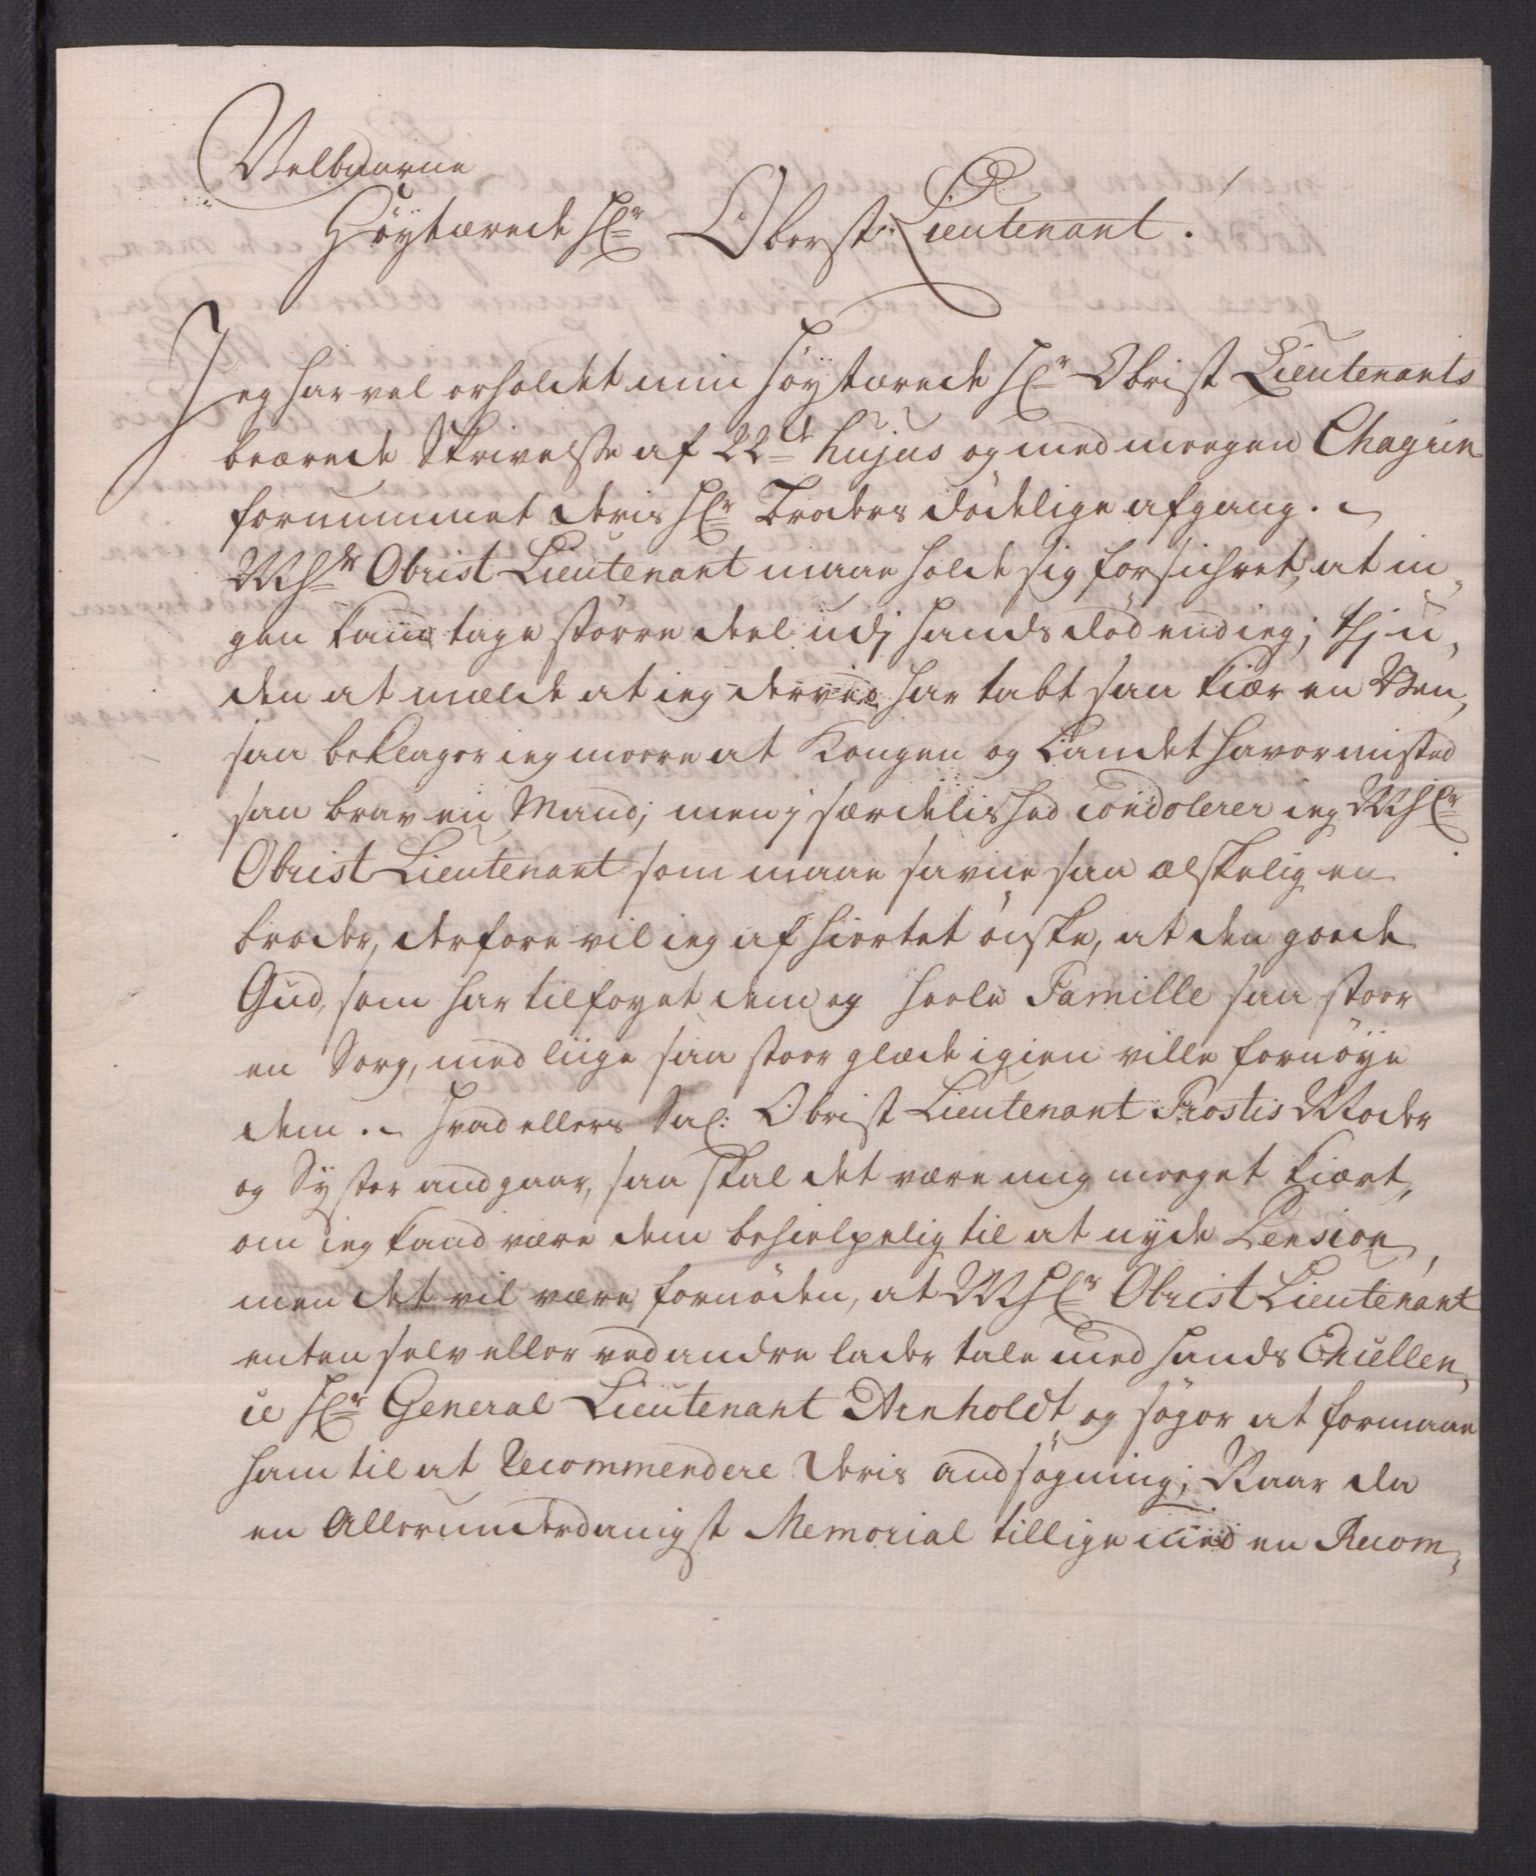 Velbaarne
Höÿtærede Hr Oberst-Lieutenant.
Jeg har vel erholdet min Höÿtærede Hr Obrist Lieutenants
beærede Skrivelse af 22de hujus og med meegen Chagrin
fornummet deris Hr Broders dödelige afgang. -
MHr Obrist Lieutenant maae holde sig forsichret, at in,,
gen kand tage större deel udj hands död end ieg; thj u,,
den at mælde at ieg derved har tabt saa kiær en Ven,
saa beklager ieg meere at Kongen og Landet haver misted
saa brav en Mand; men j særdelished condolerer ieg MHr
Obrist Lieutenant som maae savne saa ælskelig en
broder, derfore vil ieg af hiertet önske, at den goede
Gud, som har tilföyet dem og heele Famille saa stoor
en Sorg, med liige saa stoor glæde igien ville fornöye
dem. - Hvad ellers Sal: Obrist Lieutenant Frostis Moder
og Syster andgaar, saa skal det være mig meeget kiært,
om ieg kand være dem behielpelig til at nyde Pension,
men det vil være fornöden, at MHr Obrist Lieutenant
enten selv eller ved andre lader tale med hands Excellen,,
ce Hr General Lieutenant Arnholdt og söger at formaae
ham til at Recommendere deris andsögning; Naar da
en Allerunderdanigst Memorial tillige med en Recom,,